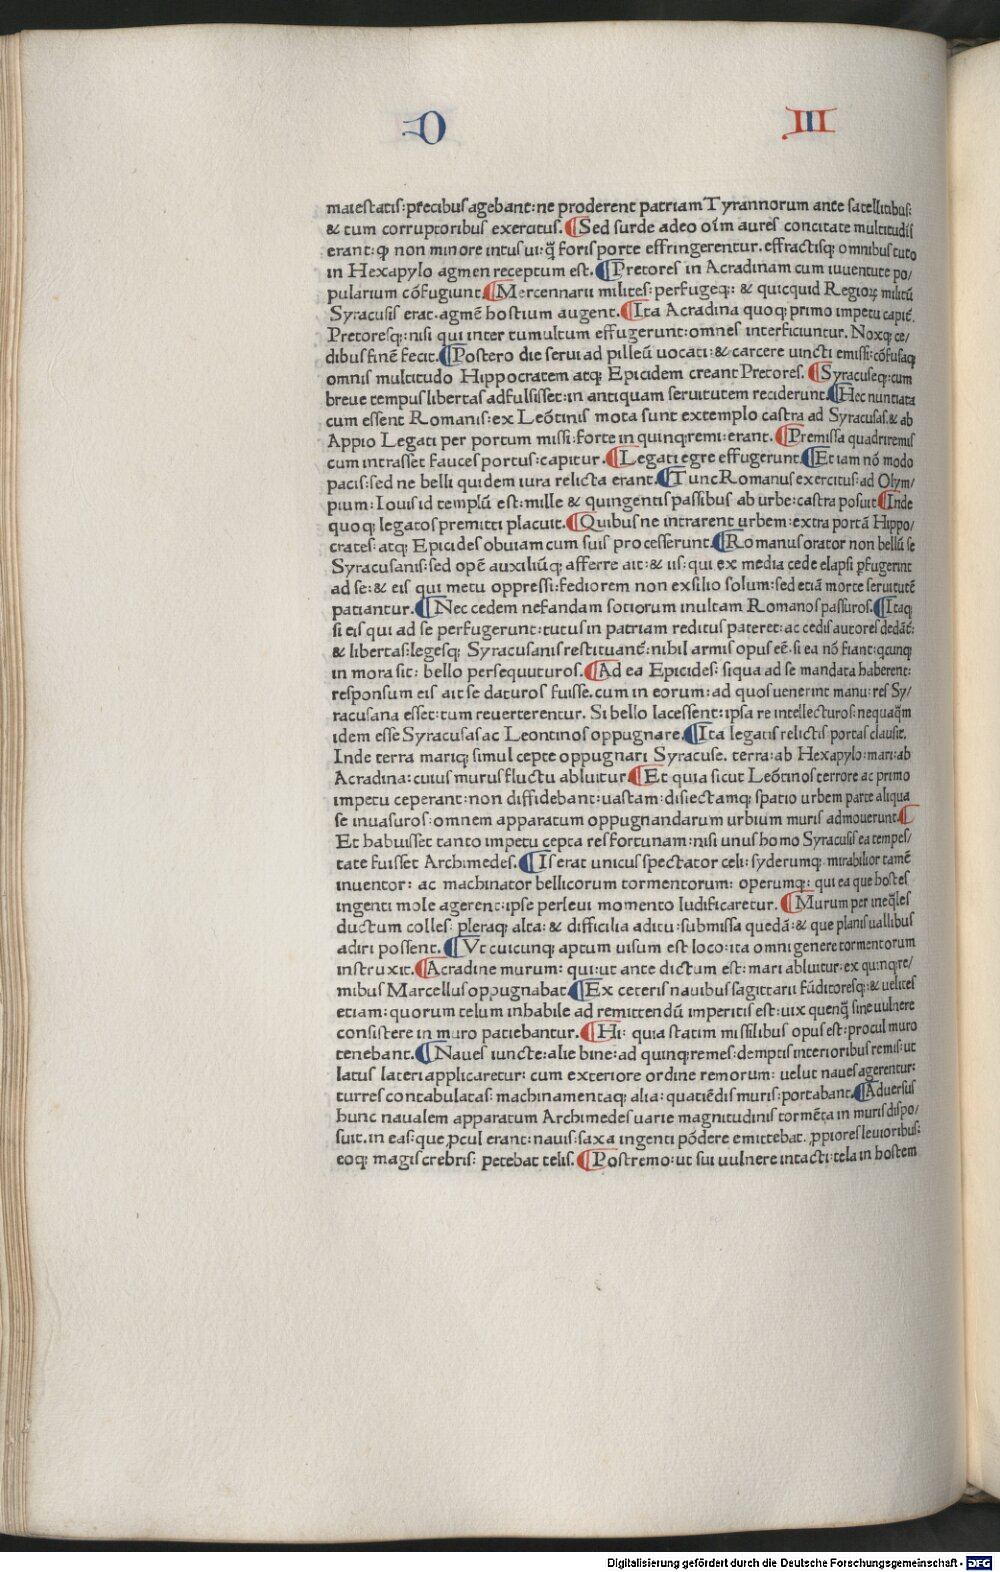 D III
maiestatis: precibus agebant: ne proderent patriam Tyrannorum ante satellitibus:
& tum corruptoribus exercitus. ¶Sed surde adeo oīm aures concitate multitudīs
erant: ꝙ non minore intus ui: q̄̃ foris porte effringerentur. effractisq; omnibus tuto
in Hexapylo agmen receptum est. ¶Pretores in Acradinam cum iuuentute po/
pularium cōfugiunt ¶Mercennarii milites: perfugeq;: & quicquid Regioꝝ militū
Syracusis erat. agmē hostium augent. ¶Ita Acradina quoq; primo impetu capit̄.
Pretoresq; nisi qui inter tumultum effugerunt: omnes interficiuntur. Noxq; ce/
dibus finē fecit. ¶Postero die serui ad pilleū uocati: & carcere uincti emissi: cōfusaq;
omnis multitudo Hippocratem atq; Epicidem creant Pretores. ¶Syracuseq;: cum
breue tempus libertas adfulsisset: in antiquam seruitutem reciderunt ¶Hec nuntiata
cum essent Romanis: ex Leōtinis mota sunt extemplo castra ad Syracusas. & ab
Appio Legati per portum missi: forte in quinq; remi: erant. ¶Premissa quadriremis
cum intrasset fauces portus: capitur. ¶Legati egre effugerunt ¶Et iam nō modo
pacis: sed ne belli quidem iura relicta erant. ¶Tunc Romanus exercitus: ad Olym/
pium: Iouis id templū est: mille & quingentis passibus ab urbe: castra posuit ¶Inde
quoq; legatos premitti placuit. ¶Quibus ne intrarent urbem: extra portā Hippo/
crates: atq; Epicides obuiam cum suis processerunt ¶Romanus orator non bellū se
Syracusanis: sed opē auxiliūq; afferre ait: & iis: qui ex media cede elapsi ꝑfugerint
ad se: & eis qui metu oppressi: fediorem non exsilio solum: sed etiā morte seruitutē
patiantur. ¶Nec cedem nefandam sotiorum inultam Romanos passuros. ¶Itaq;
si eis qui ad se perfugerunt: tutus in patriam reditus pateret: ac cedis autores dedāt̄:
& libertas: legesq; Syracusanis restituant̄: nihil armis opus eē. si ea nō fiant: qcunq;
in mora sit: bello persequuturos. ¶Ad ea Epicides: siqua ad se mandata haberent:
responsum eis ait se daturos fuisse. cum in eorum: ad quos uenerint manu: res Sy/
racusana esset: tum reuerterentur. Si bello lacessent: ipsa re intellecturos: nequaq̄̃m
idem esse Syracusas ac Leontinos oppugnare. ¶Ita legatis relictis portas clausit.
Inde terra mariq; simul cepte oppugnari Syracuse. terra: ab Hexapylo: mari: ab
Acradina: cuius murus fluctu abluitur ¶Et quia sicut Leōtinos terrore ac primo
impetu ceperant: non diffidebant: uastam: disiectamq; spatio urbem parte aliqua
se inuasuros: omnem apparatum oppugnandarum urbium muris admouerunt ¶
Et habuisset tanto impetu cepta res fortunam: nisi unus homo Syracusis ea tempes/
tate fuisset Archimedes. ¶Is erat unicus spectator celi: syderumq; mirabilior tamē
inuentor: ac machinator bellicorum tormentorum: operumq;: qui ea que hostes
ingenti mole agerent: ipse perleui momento ludificaretur. ¶Murum per ineq̄̃les
ductum colles: pleraq; alta: & difficilia aditu: submissa quedā: & que planis uallibus
adiri possent. ¶Vt cuicunq; aptum uisum est loco: ita omni genere tormentorum
instruxit. ¶Acradine murum: qui: ut ante dictum est: mari abluitur: ex quinq; re/
mibus Marcellus oppugnabat ¶Ex ceteris nauibus sagittarii fūditoresq;: & uelites
etiam: quorum telum inhabile ad remittendū imperitis est: uix quenq̄̃ sine uulnere
consistere in muro patiebantur. ¶Hi: quia statim missilibus opus est: procul muro
tenebant. ¶Naues iuncte: alie bine: ad quinq; remes: demptis interioribus remis: ut
latus lateri applicaretur: cum exteriore ordine remorum: uelut naues agerentur:
turres contabulatas: machinamentaq; alia: quatiēdis muris: portabant ¶Aduersus
hunc naualem apparatum Archimedes uarie magnitudinis tormēta in muris dispo/
suit. in eas: que ꝓcul erant: nauis: saxa ingenti pōdere emittebat. ꝓpiores leuioribus:
eoq; magis crebris: petebat telis. ¶Postremo: ut sui uulnere intacti: tela in hostem
Digitalisierung gefördert durch die Deutsche Forschungsgemeinschaft - DFG